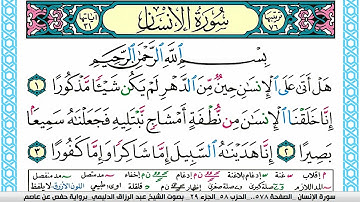 سُورَةُ الإِنسَانِ
بِسْمِ اللَّهِ الرَّحْمَٰنِ الرَّحِيمِ
هَلْ أَتَىٰ عَلَى الْإِنسَانِ حِينٌ مِّنَ الدَّهْرِ لَمْ يَكُن شَيْئًا مَّذْكُورًا ١
إِنَّا خَلَقْنَا الْإِنسَانَ مِن نُّطْفَةٍ أَمْشَاجٍ نَّبْتَلِيهِ فَجَعَلْنَاهُ سَمِيعًا
بَصِيرًا ٢ إِنَّا هَدَيْنَاهُ السَّبِيلَ إِمَّا شَاكِرًا وَإِمَّا كَفُورًا ٣
سورة الإنسان . الصفحة ٥٧٨ . الحزب ٥٨ . الجزء ٢٩ . بصوت الشيخ عبد الرزاق الدليمي . برواية حفص عن عاصم